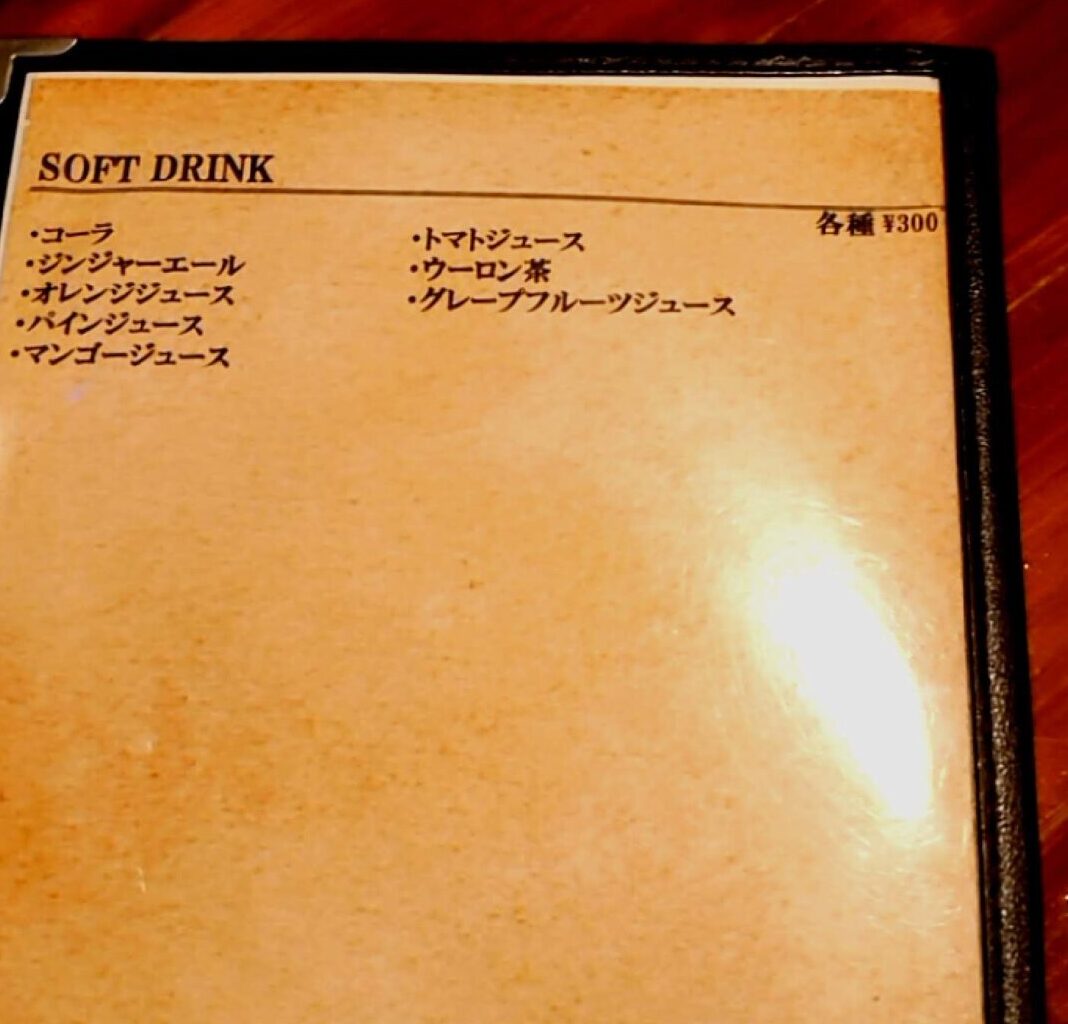 SOFT DRINK
各種 ¥300
・コーラ
・ジンジャーエール
・オレンジジュース
・パインジュース
・マンゴージュース
・トマトジュース
・ウーロン茶
・グレープフルーツジュース